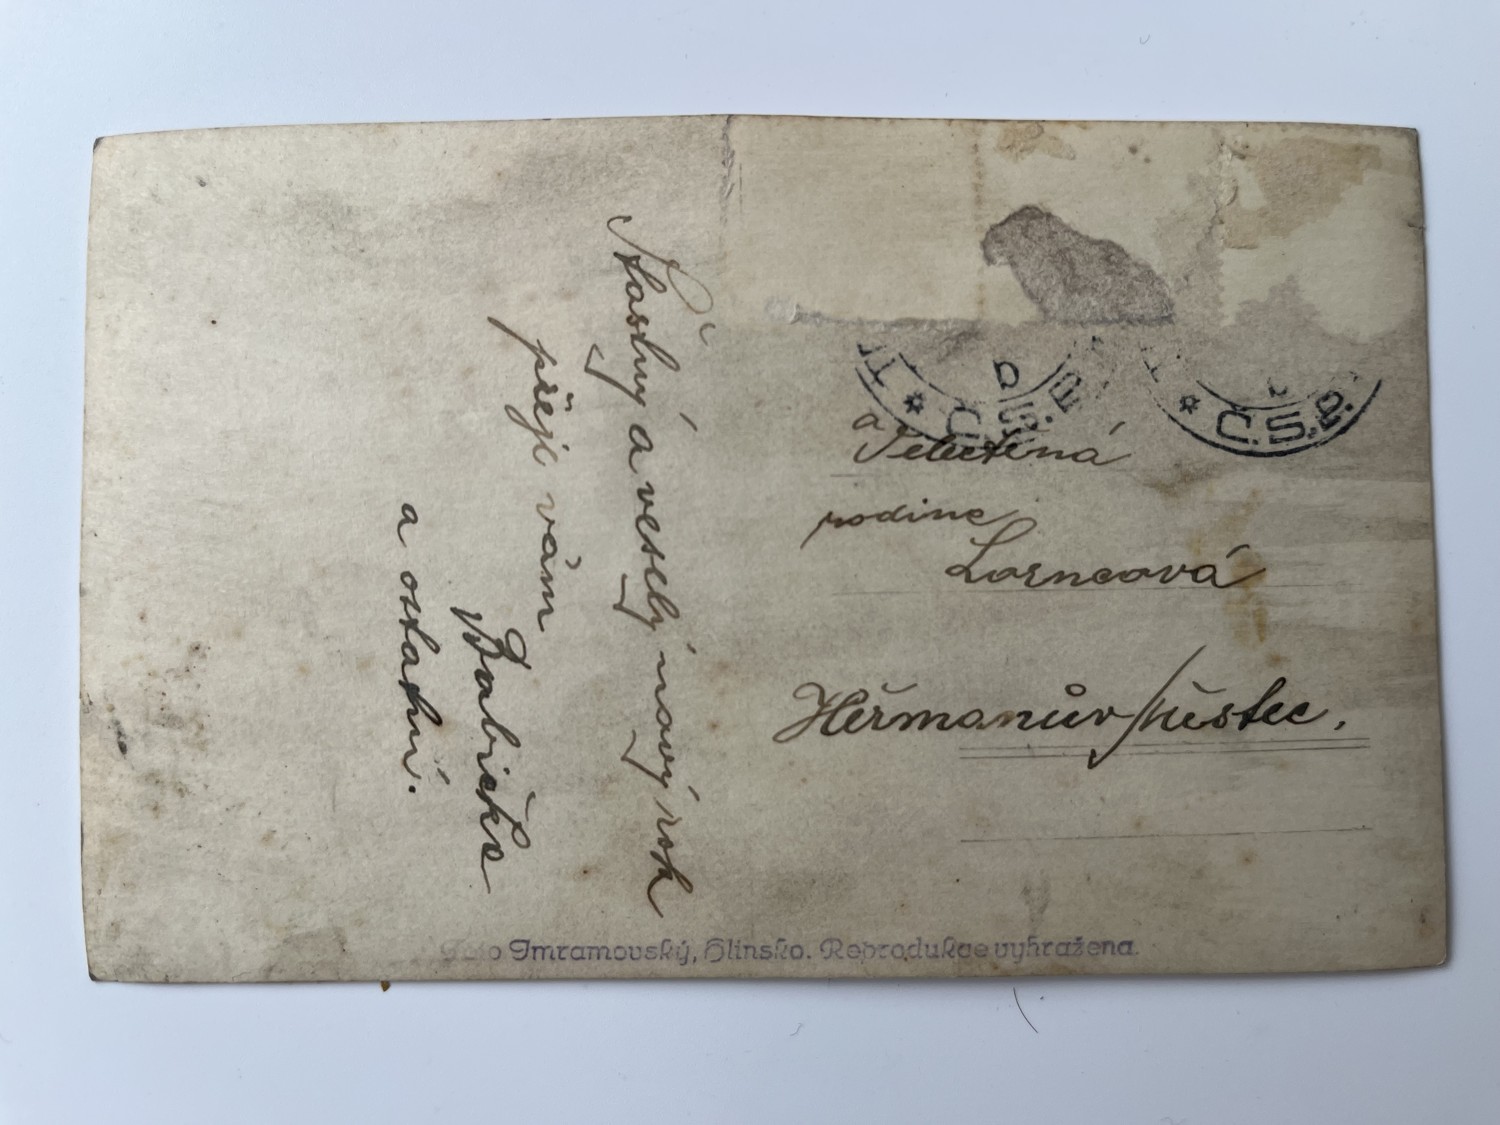 Šťastný a veselý nový rok
přeji vám
Babička
a ostatní.
Č.S.P.
Č.S.P.
a
rodine
Lorncová
Heřmanův/ůstec,
Foto Imramovský, Hlinsko. Reprodukce vyhražena.